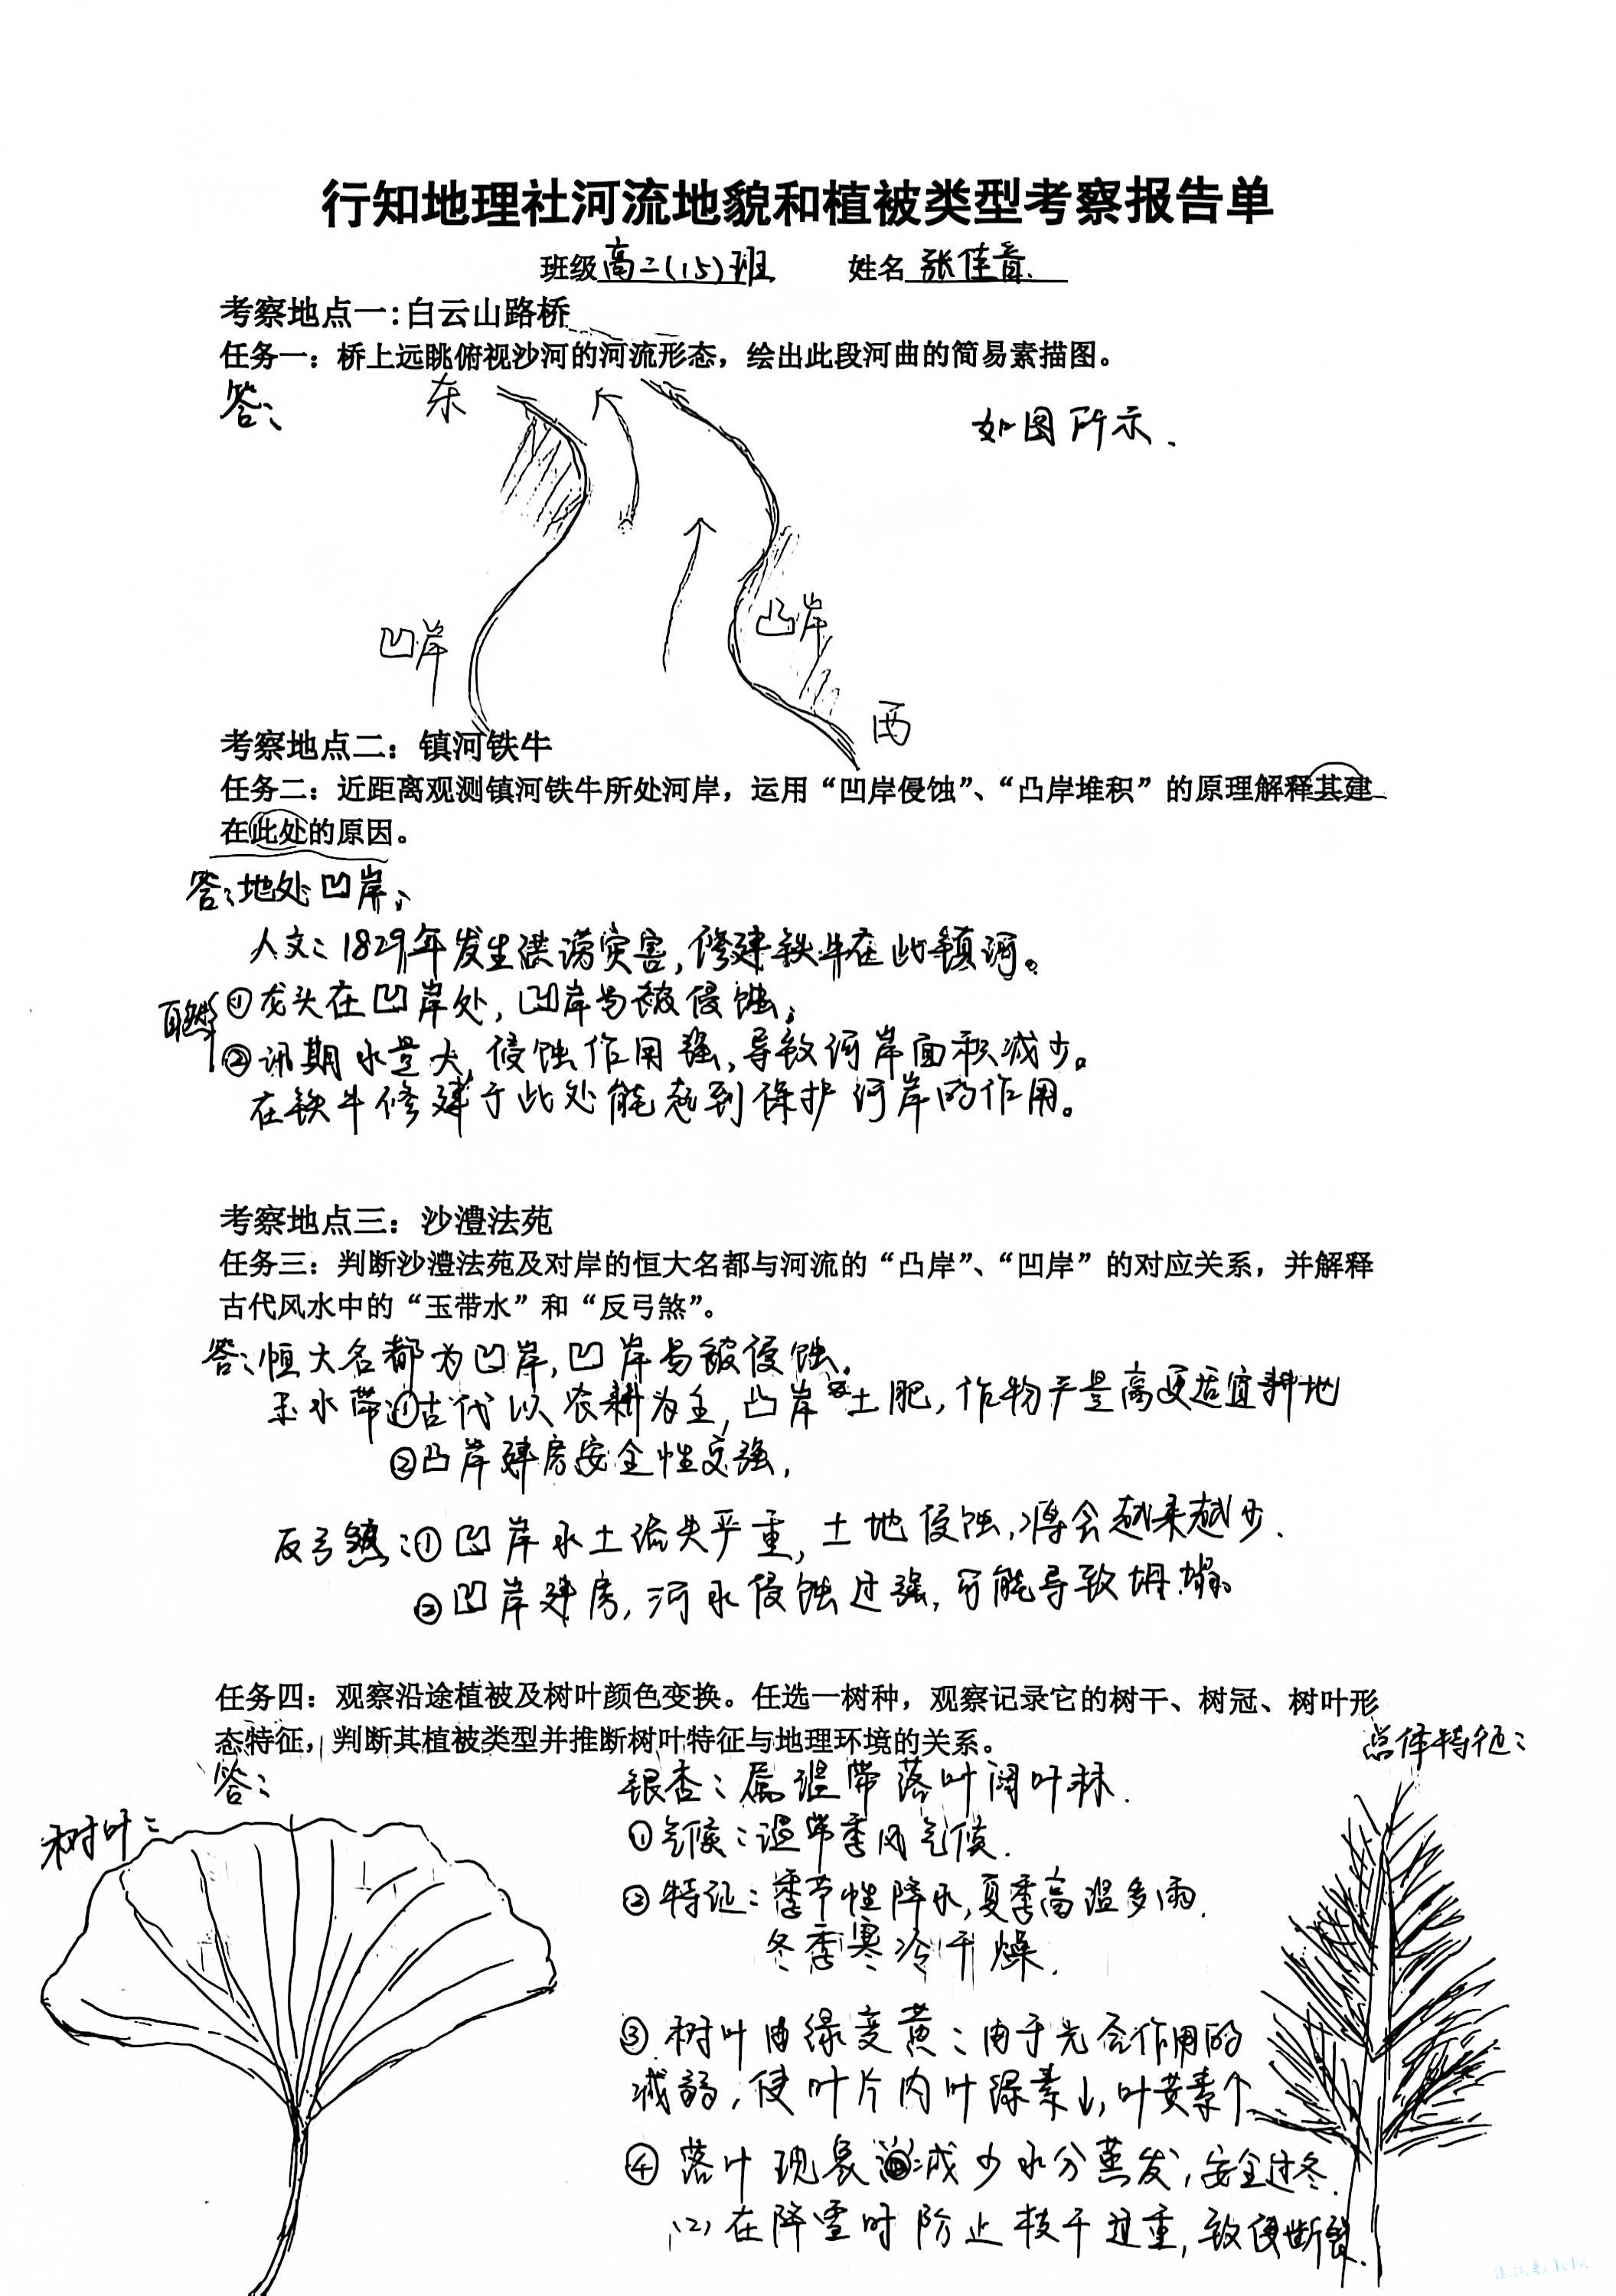 行知地理社河流地貌和植被类型考察报告单
班级高二(15)班 姓名张佳音.
考察地点一:白云山路桥
任务一：桥上远眺俯视沙河的河流形态，绘出此段河曲的简易素描图。
答：
东
如图所示.
凹岸
凸岸
西
考察地点二：镇河铁牛
任务二：近距离观测镇河铁牛所处河岸，运用“凹岸侵蚀”、“凸岸堆积”的原理解释其建
在此处的原因。
答：地处凹岸；
人文：1829年发生洪涝灾害,修建铁牛在此镇河。
自然
①龙头在凹岸处，凹岸易被侵蚀；
②汛期水量大,侵蚀作用强,导致河岸面积减少。
在铁牛修建于此处能起到保护河岸的作用。
考察地点三：沙澧法苑
任务三：判断沙澧法苑及对岸的恒大名都与河流的“凸岸”、“凹岸”的对应关系，并解释
古代风水中的“玉带水”和“反弓煞”。
答：恒大名都为凹岸,凹岸易被侵蚀.
玉水带①古代以农耕为主,凸岸土肥,作物产量高更适宜耕地
②凸岸建房安全性交强,
反弓煞：①凹岸水土流失严重,土地侵蚀,将会越来越少.
②凹岸建房,河水侵蚀过强,可能导致坍塌。
任务四：观察沿途植被及树叶颜色变换。任选一树种，观察记录它的树干、树冠、树叶形
态特征，判断其植被类型并推断树叶特征与地理环境的关系。
总体特征：
答：
树叶：
银杏：属温带落叶阔叶林.
①气候：温带季风气候.
②特征：季节性降水,夏季高温多雨.
冬季寒冷干燥.
③树叶由绿变黄：由于光合作用的
减弱,使叶片内叶绿素↓,叶黄素个
④落叶现象减少水分蒸发,安全过冬.
(2)在降雪时防止枝干过重,致使断裂.